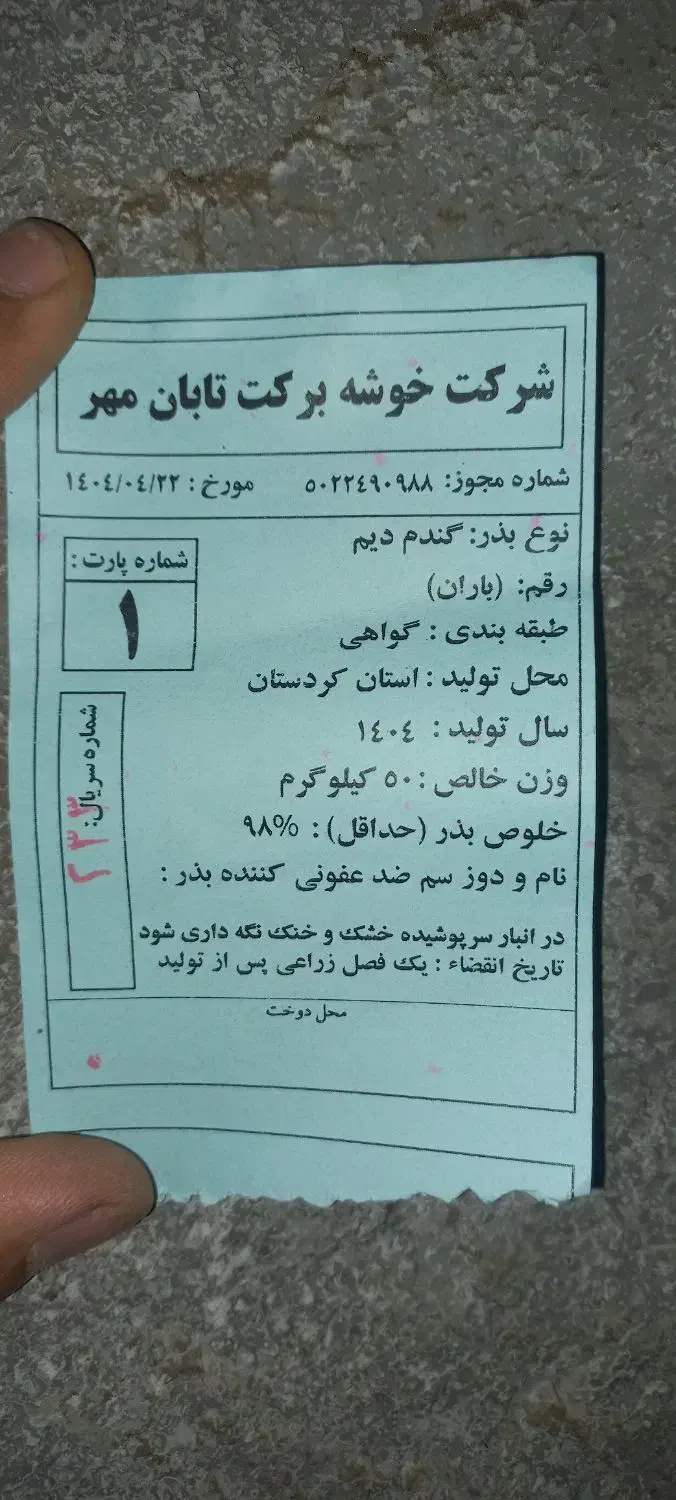 شرکت خوشه برکت تابان مهر
شماره مجوز: ۵۰۲۲٤۹۰۹۸۸ مورخ : ۱٤۰٤/۰٤/۲۲
نوع بذر: گندم دیم
رقم: (باران)
طبقه بندی : گواهی
محل تولید : استان کردستان
سال تولید : ۱٤۰٤
وزن خالص : ۵۰ کیلوگرم
خلوص بذر (حداقل) : ۹۸%
نام و دوز سم ضد عفونی کننده بذر :
شماره پارت :
۱
شماره سریال:
در انبار سرپوشیده خشک و خنک نگه داری شود
تاریخ انقضاء : یک فصل زراعی پس از تولید
محل دوخت